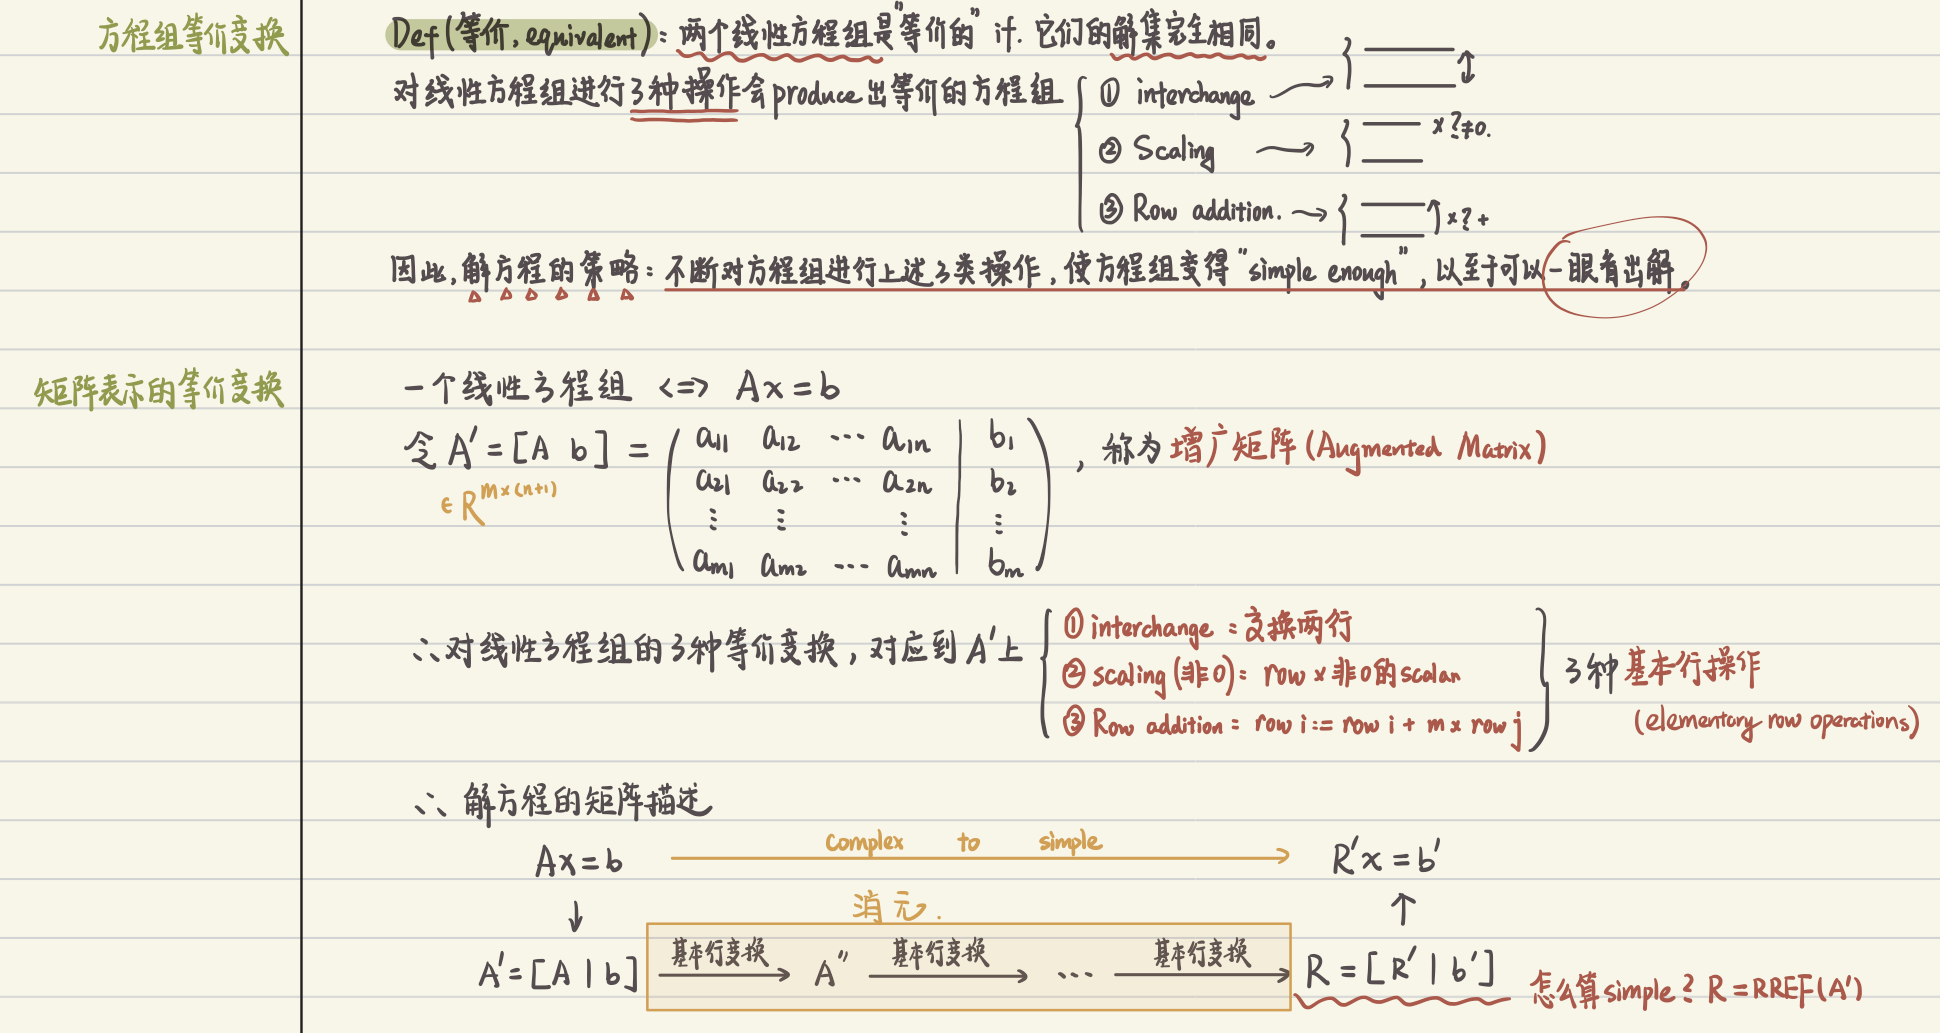 方程组等价变换
Def(等价, equivalent): 两个线性方程组是"等价的" if. 它们的解集完全相同。
对线性方程组进行3种操作会produce出等价的方程组
① interchange
② Scaling
x?≠0.
③ Row addition.
x?+
因此,解方程的策略: 不断对方程组进行上述3类操作, 使方程组变得"simple enough", 以至于可以一眼看出解。
矩阵表示的等价变换
一个线性方程组 <=> Ax=b
令 A'=[A b] = ( a11 a12 ⋯ a1n | b1
a21 a22 ⋯ a2n | b2
⋮ ⋮ ⋮ | ⋮
am1 am2 ⋯ amn | bm ), 称为增广矩阵(Augmented Matrix)
∈ R^{m×(n+1)}
∴对线性方程组的3种等价变换, 对应到A'上
① interchange: 交换两行
② scaling(非0): row x 非0的scalar
③ Row addition: row i := row i + m x row j
3种基本行操作
(elementary row operations)
∴ 解方程的矩阵描述
Ax=b complex to simple R'x=b'
↓ 消元. ↑
A'=[A | b] 基本行变换 A'' 基本行变换 ⋯ 基本行变换 R=[R' | b'] 怎么算simple? R=RREF(A')